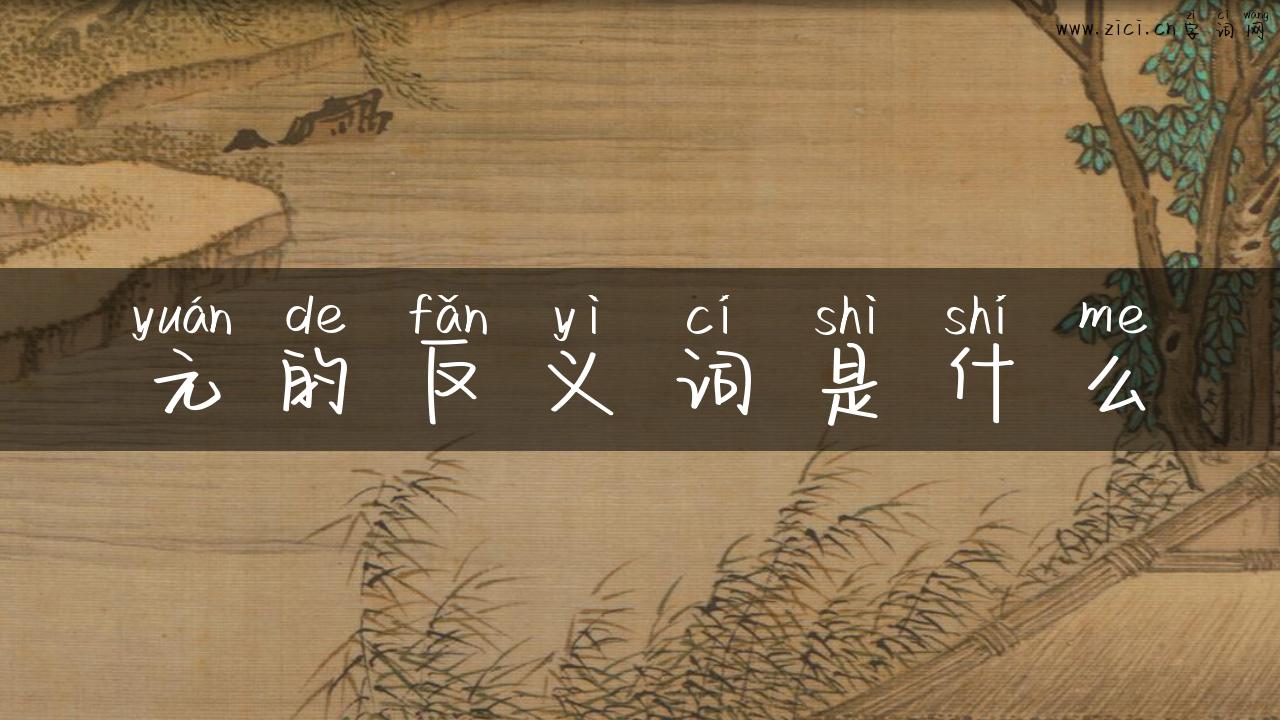 zì cí wǎng
www.zici.cn字词网
yuán de fǎn yì cí shì shí me
元的反义词是什么